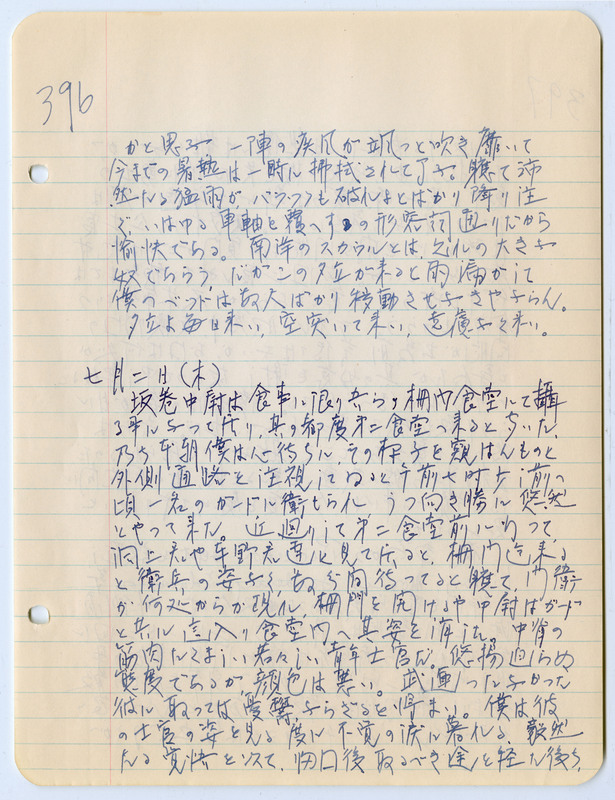 396
かと思ふ 一陣の疾風が颯っと吹き靡いて
今までの暑熱は一時に拂拭されて了ふ。軈て沛
然たる猛雨が、バラックも破れよとばかり降り注
ぐ、いはゆる車軸を覆へすの形容詞通りだから
愉快である。南洋のスカウルとは之れの大きな
奴であらう、だがこの夕立が来ると雨漏がして
僕のベッドは数尺ばかり移動させなきやならん。
夕立よ毎日来い、空突いて来い、遠慮なく来い。
七月二日(木)
坂巻中尉は食事に限り吾らの柵内食堂にて攝
る事になって居り、其の都度第二食堂へ来ると聞いた、
乃ち本朝僕は心待ちに、その様子を窺はんものと
外側通路を注視してゐると午前七時少し前の
頃 一名のガードに衛もられ うつ向き勝に 悠然
とやって来た。近廻りして第二食堂前に行って
洞上君や平野君達と見て居ると、柵門迄来る
と衛兵の姿なく 数分間待ってると軈て、内衛
が何処からか現れ 柵門を開けるや中尉はガード
と共に這入り食堂内へ其姿を消した。中背の
筋肉たくましい若々しい青年士官だ。悠揚迫らぬ
態度であるが、顔色は悪い。武運つたなかった
彼に取っては、憂鬱ならざるを得まい。僕は彼
の士官の姿を見る度に不覚の涙に暮れる、毅然
たる覚悟を以て、今日後取るべき途を経た後ち、